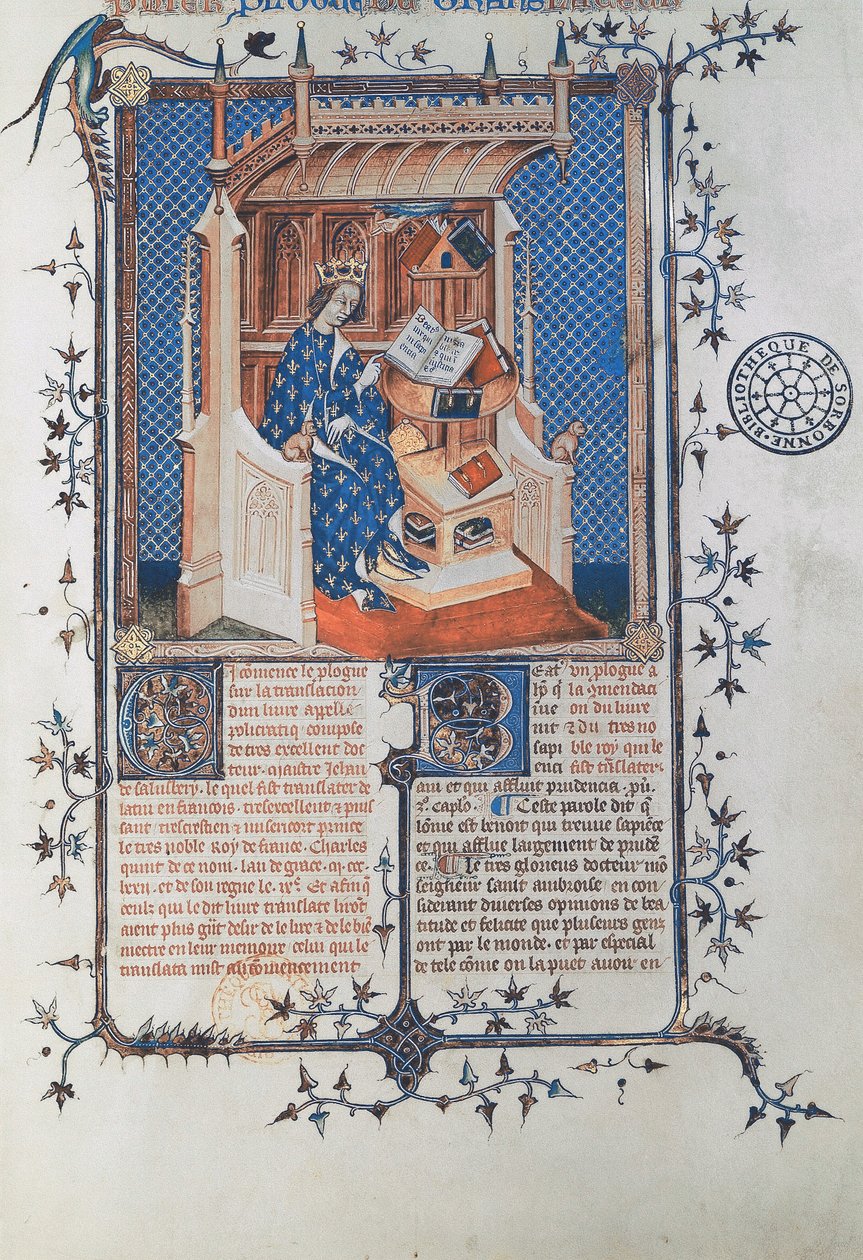 prologue du translateur
Beatus
vir qui
in sapi
entia
BIBLIOTHEQUE DE SORBONNE
Ci comence le plogue
sur la translacion
dun liure appelle
policratiq compose
de tres excellent doc
teur. maistre Jehan
de salusbery. le quel fist translater de
latin en francois. tresexcellent ⁊ puis
sant trescrestien ⁊ misericort prince
le tres noble Roy de france. Charles
quint de ce nom. lan de grace. m. ccc.
lxxii. et de son regne le. ixe. Et afin q̄
ceulx qui le dit liure translate liront
aient plus g̃nt desir de le lire ⁊ de le biē
mectre en leur memoire celui qui le
translata mist au cōmencement
Beat9 vn plogue a
lp̄o q̄ la 9mendaci
īue on du liure
nit ⁊ du tres no
sapi ble roy qui le
enci fist tr̃slater.
am et qui affluit prudencia. pu.
2o. caplo. ¶ Ceste parole dit q̄
lōme est benoit qui treuue sapiēce
et qui afflue largement de prudē
ce. ¶ Le tres glorieus docteur mō
seigneur saint ambroise. en con
siderant diuerses opinions de bea
titude et felicite que plusieurs genz
ont par le monde. et par especial
de tele cōme on la puet auoir en